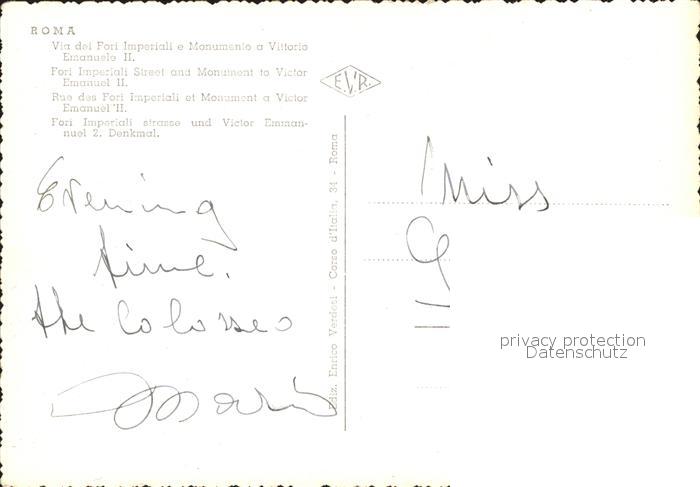 ROMA
Via dei Fori Imperiali e Monumento a Vittorio
Emanuele II.
Fori Imperiali Street and Monument to Victor
Emanuel II.
Rue des Fori Imperiali et Monument a Victor
Emanuel II.
Fori Imperiali strasse und Victor Emman-
nuel 2. Denkmal.
E.V.R.
Evening
time.
the Colosseo
Ediz. Enrico Verdesi - Corso d'Italia, 34 - Roma
Miss
privacy protection
Datenschutz